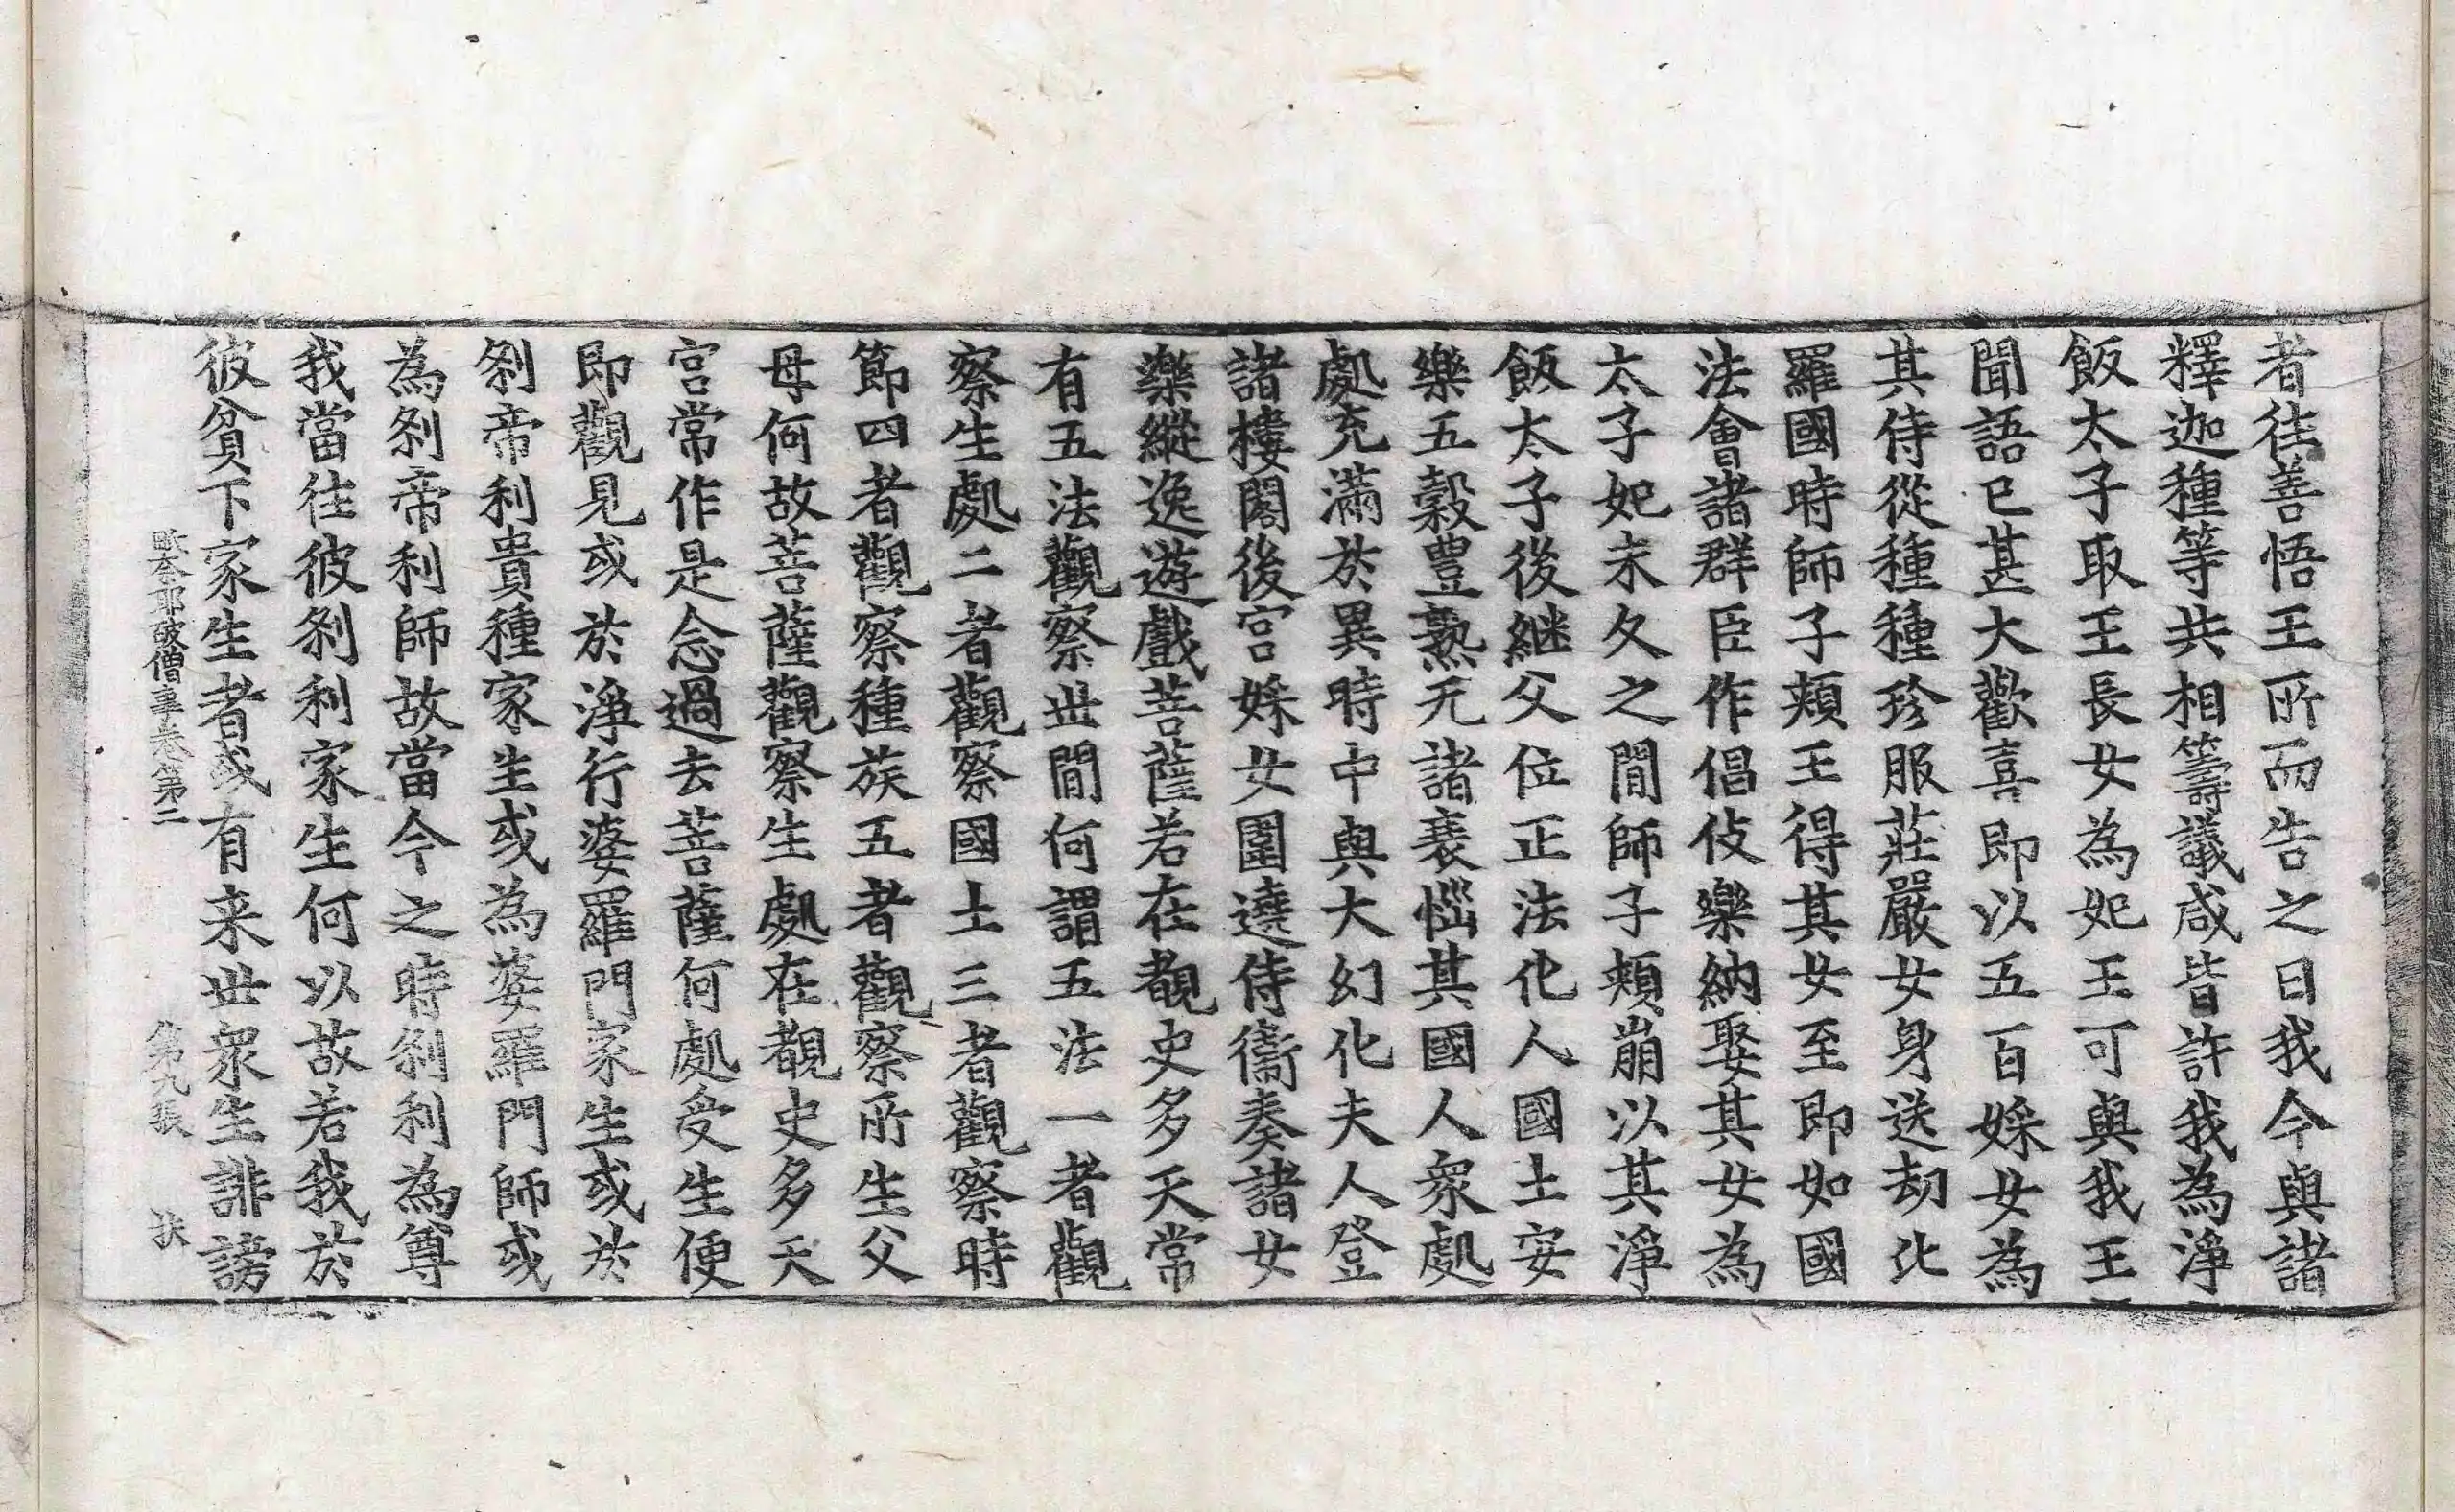 者往善悟王所而告之曰我今與諸
釋迦種等共相籌議咸皆許我為淨
飯太子取王長女為妃王可與我王
聞語已甚大歡喜即以五百婇女為
其侍從種種珍服莊嚴女身送劫比
羅國時師子頰王得其女至即如國
法會諸群臣作倡伎樂納娶其女為
太子妃未久之閒師子頰崩以其淨
飯太子後継父位正法化人國土安
樂五穀豊熟无諸衰惱其國人眾處
處充滿於異時中與大幻化夫人登
諸樓閣後宮婇女圍遶侍衞奏諸女
樂縱逸遊戲菩薩若在覩史多天常
有五法觀察世間何謂五法一者觀
察生處二者觀察國土三者觀察時
節四者觀察種族五者觀察所生父
母何故菩薩觀察生處在覩史多天
宮常作是念過去菩薩何處受生便
即觀見或於淨行婆羅門家生或於
剎帝利貴種家生或為婆羅門師或
為剎帝利師故當今之時剎利為尊
我當往彼剎利家生何以故若我於
彼貧下家生者或有来世眾生誹謗
毗奈耶破僧事卷第二 第九張 扶